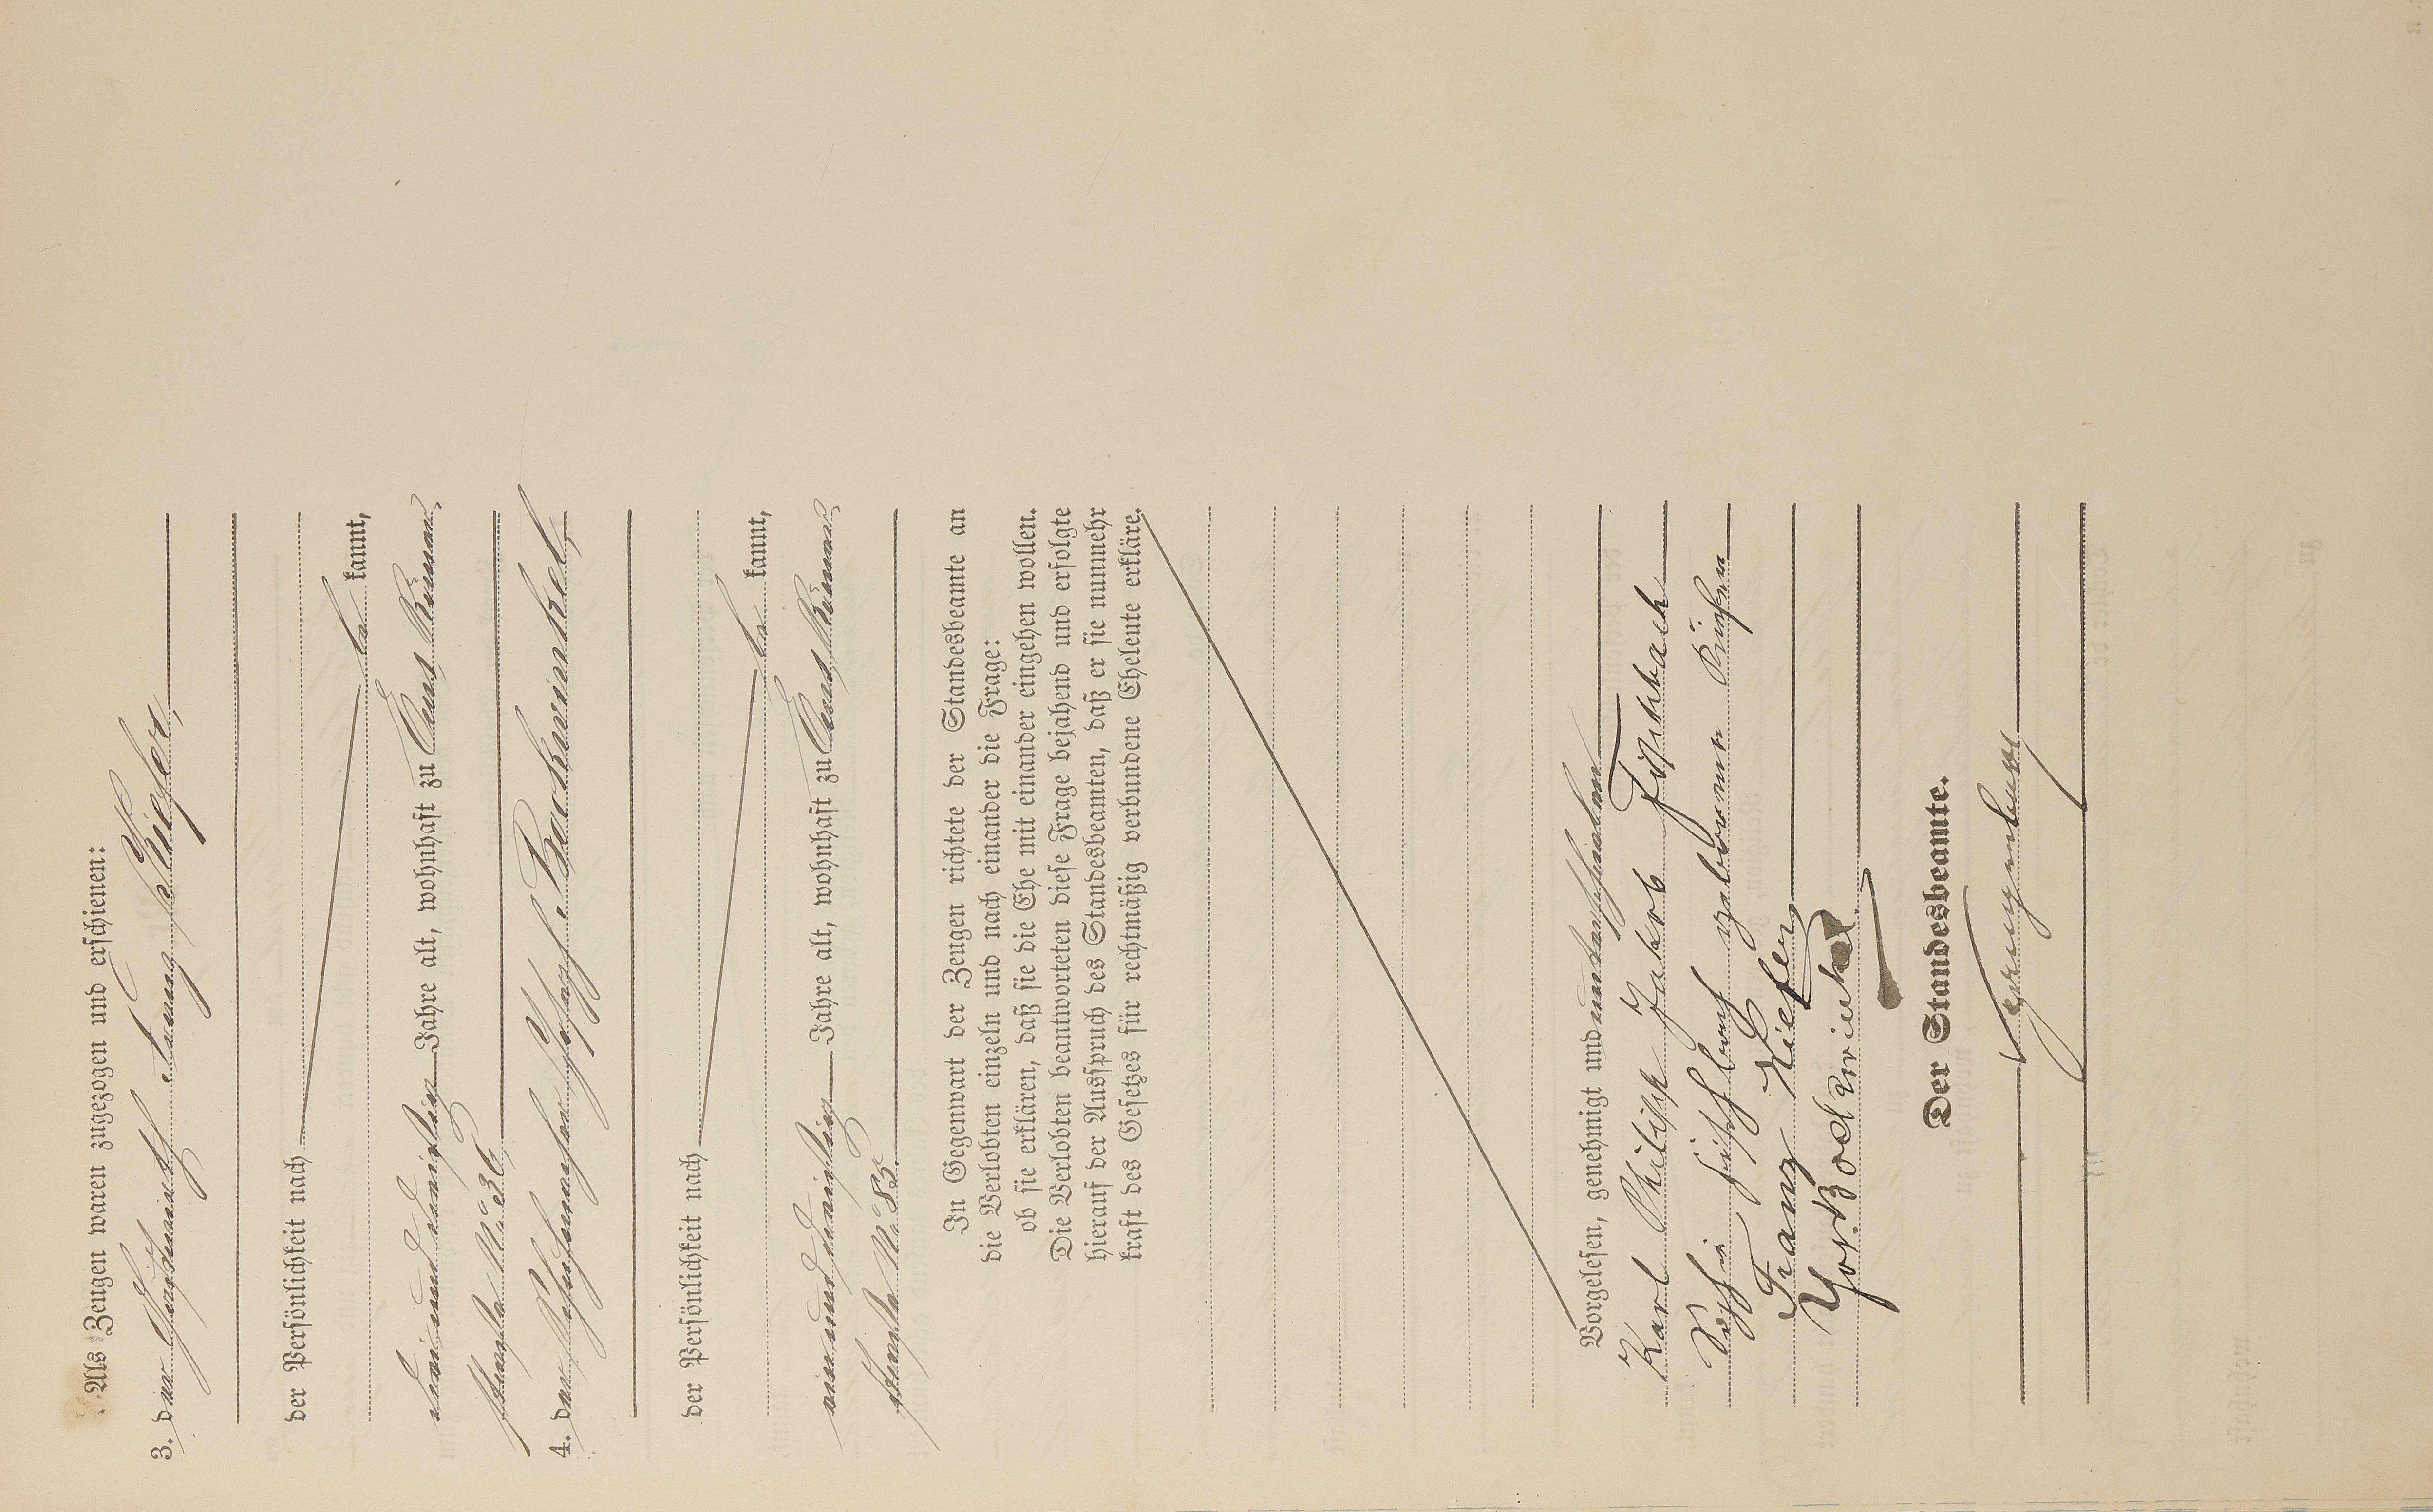 Als Zeugen waren zugezogen und erschienen:
3. der Gastwirth Franz Kiefer,
der Persönlichkeit nach
be kannt,
drei und dreißig Jahre alt, wohnhaft zu
straße No 36
4. der Schuhmacher Joseph Backwinkel,
der Persönlichkeit nach
be kannt,
ein und dreißig Jahre alt, wohnhaft zu
straße No 85.
In Gegenwart der Zeugen richtete der Standesbeamte an
die Verlobten einzeln und nach einander die Frage:
ob sie erklären, daß sie die Ehe mit einander eingehen wollen.
Die Verlobten beantworteten diese Frage bejahend und erfolgte
hierauf der Ausspruch des Standesbeamten, daß er sie nunmehr
kraft des Gesetzes für rechtmäßig verbundene Eheleute erkläre.
Vorgelesen, genehmigt und unterschrieben
Karl Philipp Jakob Fischbach
Sophie Fischbach geborene
Franz Kiefer
Jos. Backwinkel
Der Standesbeamte.